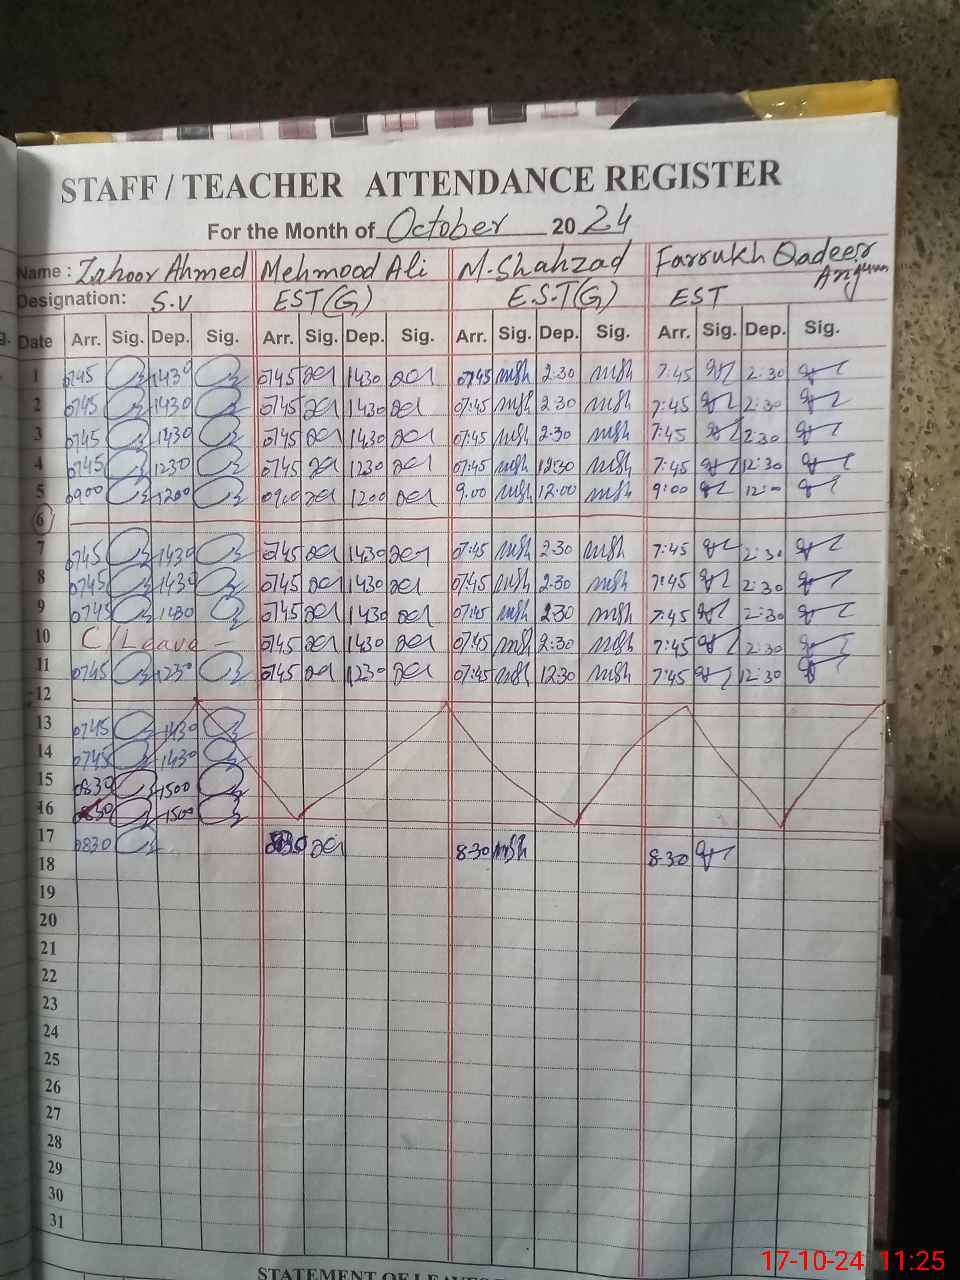 STAFF / TEACHER ATTENDANCE REGISTER
For the Month of October 2024
Name : Zahoor Ahmed Mehmood Ali M. Shahzad Farrukh Qadeer Anjum
Designation: S.V EST(G) E.S.T(G) EST
g. Date Arr. Sig. Dep. Sig. Arr. Sig. Dep. Sig. Arr. Sig. Dep. Sig. Arr. Sig. Dep. Sig.
1 0745 1430 0745 1430 0745 2:30 7:45 2:30
2 0745 1430 0745 1430 07:45 2:30 7:45 2:30
3 0745 1430 0745 1430 07:45 2:30 7:45 2:30
4 0745 1230 0745 1230 07:45 12:30 7:45 12:30
5 0900 1200 0900 1200 9:00 12:00 9:00 12:00
6
7 0745 1430 0745 1430 07:45 2:30 7:45 2:30
8 0745 1430 0745 1430 07:45 2:30 7:45 2:30
9 0745 1430 0745 1430 07:45 2:30 7:45 2:30
10 C/Leave 0745 1430 07:45 2:30 7:45 2:30
11 0745 1230 0745 1230 07:45 12:30 7:45 12:30
12
13 0745 1430
14 0745 1430
15 0830 1500
16 0830 1500
17 0830 0830 8:30 8:30
18
19
20
21
22
23
24
25
26
27
28
29
30
31
STATEMENT OF LEAVES
17-10-24 11:25